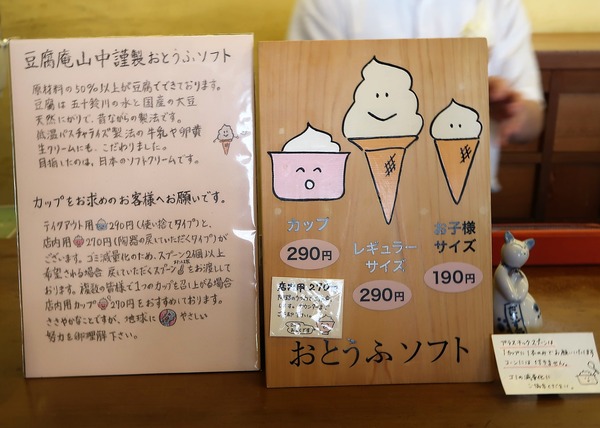 豆腐庵山中謹製おとうふソフト
原材料の50%以上が豆腐でできております。
豆腐は五十鈴川の水と国産の大豆
天然にがりで、昔ながらの製法です。
低温パスチャライズ製法の牛乳や卵黄
生クリームにも、こだわりました。
目指したのは、日本のソフトクリームです。
カップをお求めのお客様へお願いです。
テイクアウト用290円(使い捨てタイプ)と、
店内用270円(陶器の戻していただくタイプ)が
ございます。ゴミ減量化のため、スプーン2個以上
希望される場合 戻していただくスプーンをお渡しして
おります。複数の皆様で1つのカップを召し上がる場合
店内用カップ270円をおすすめしております。
ささやかなことですが、地球にやさしい
努力を御理解下さい。
カップ
290円
レギュラー
サイズ
290円
お子様
サイズ
190円
店内用270円
おとうふソフト
プラスチックスプーンは
1カップに1本のみでお願いいたします
コーンには付きません。
ゴミの減量化に
ご協力ください。